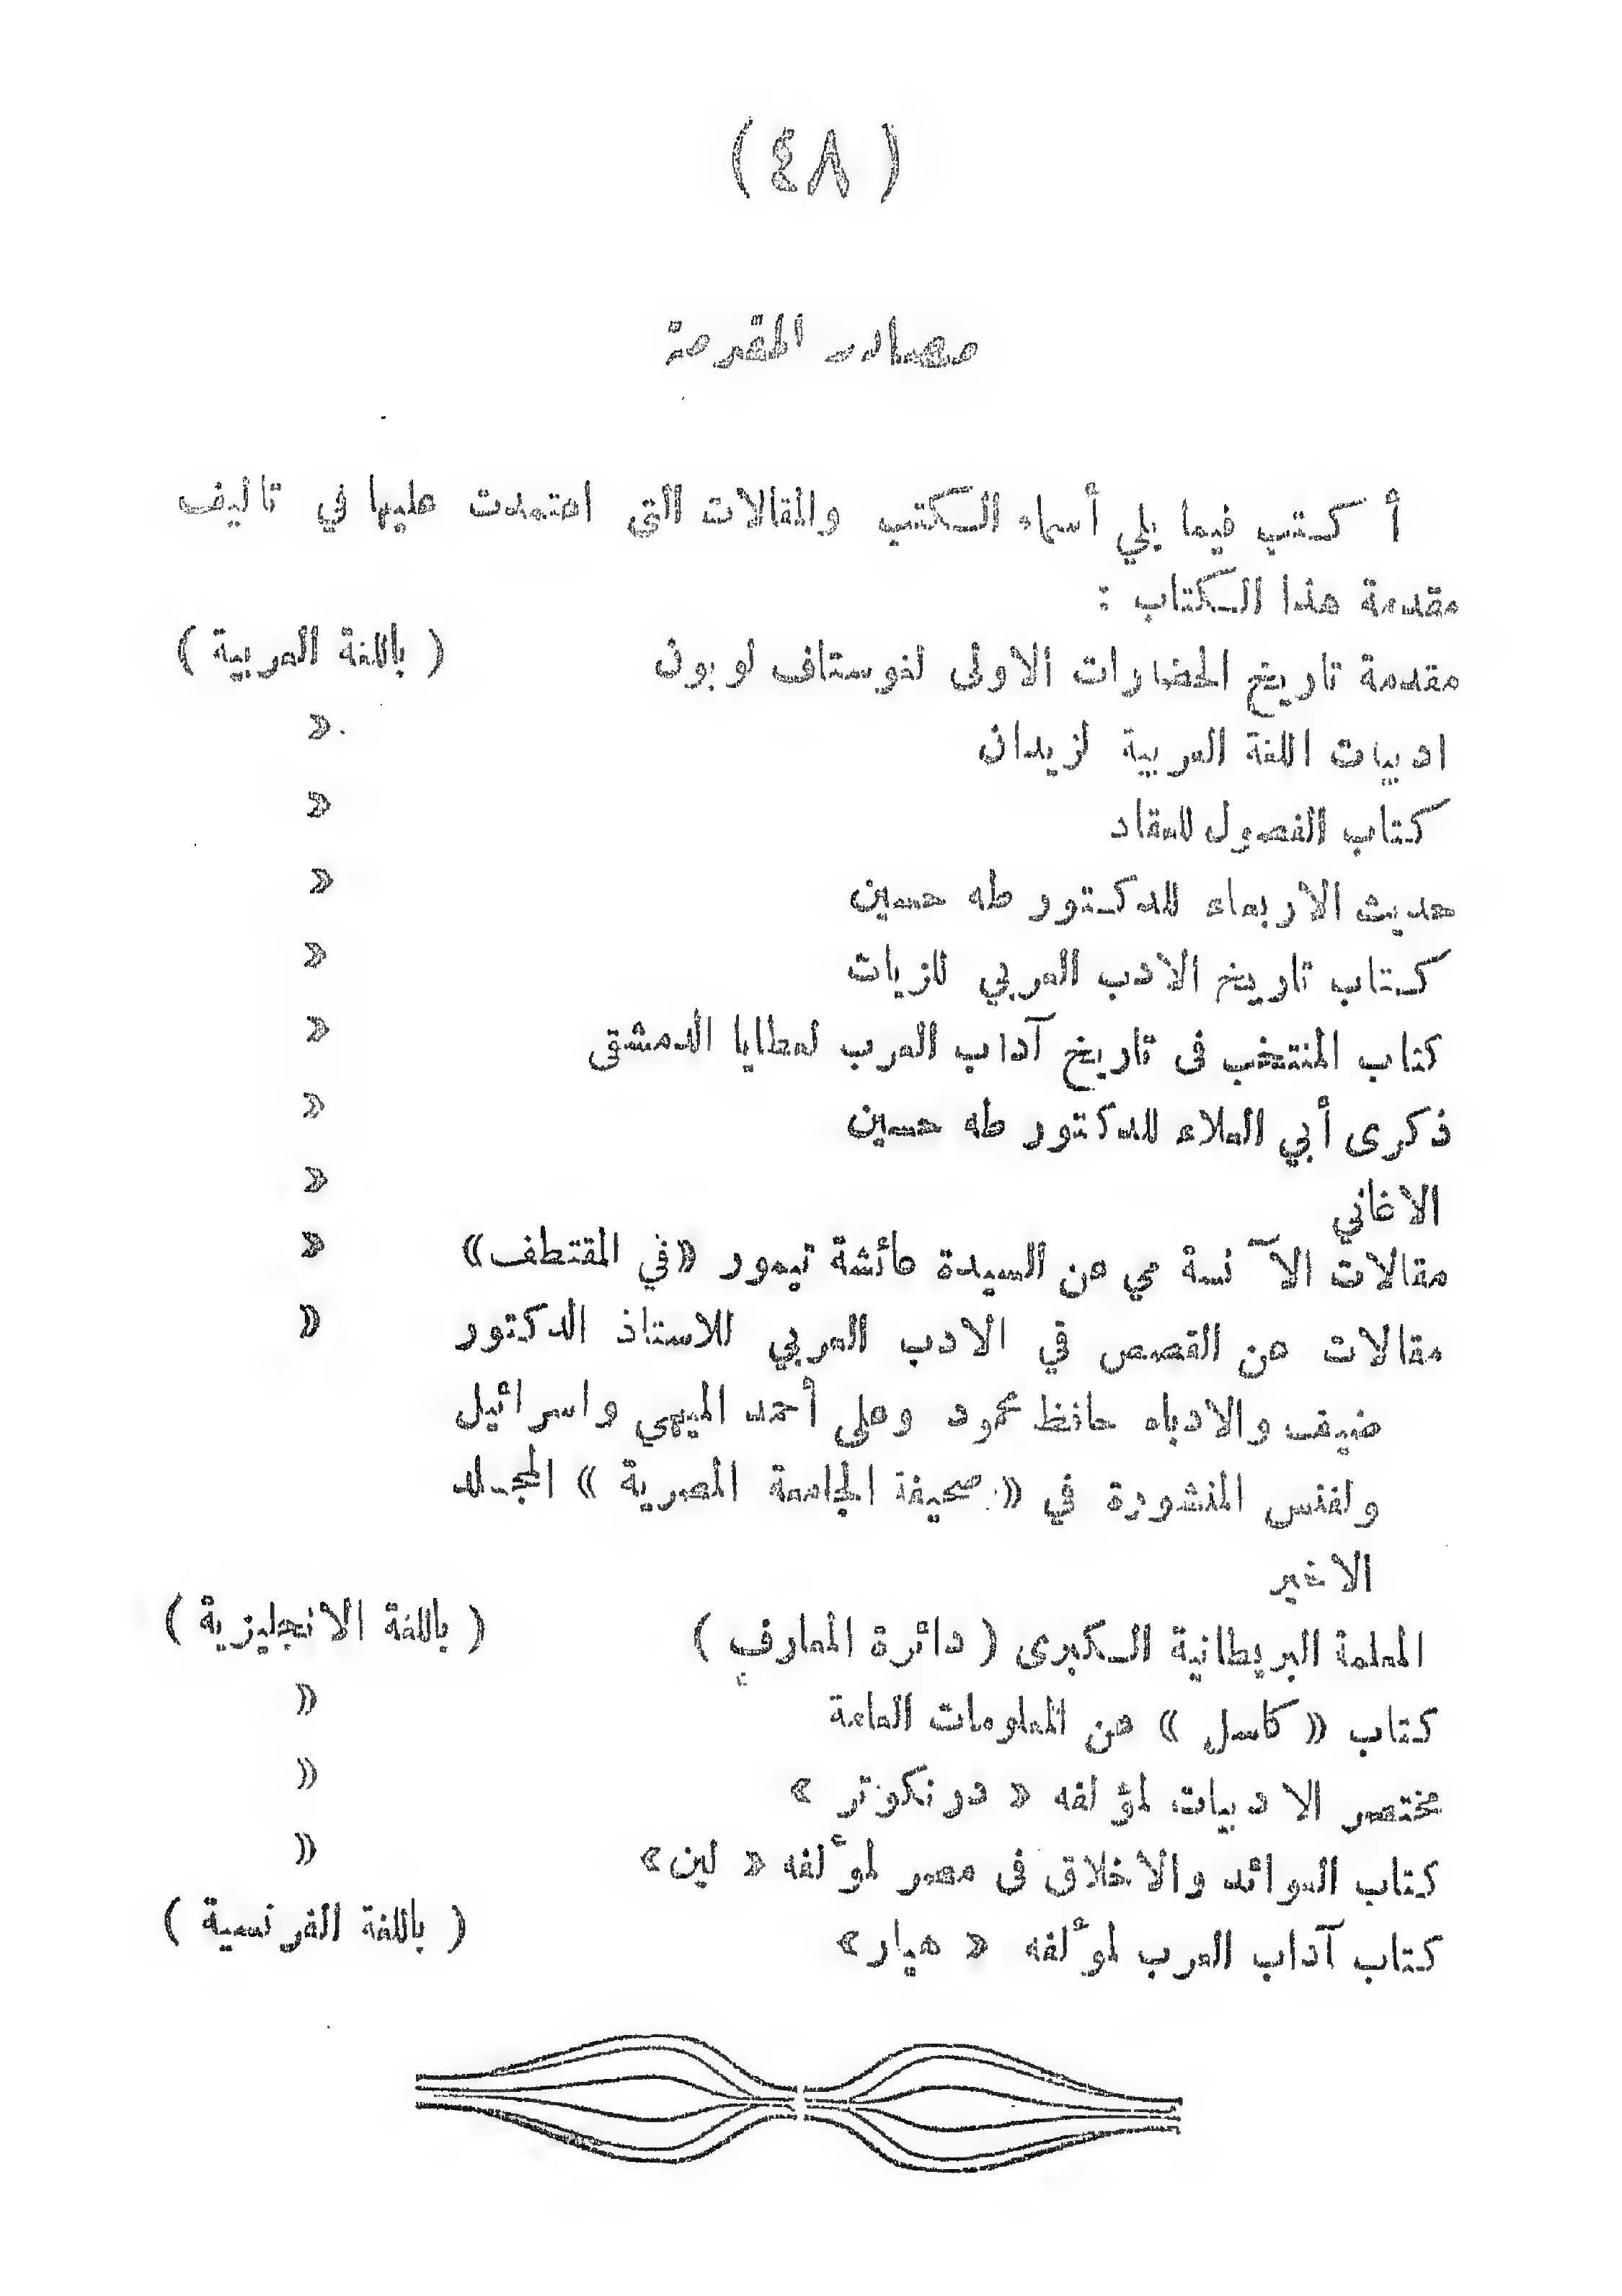 ( ٤٨ )
مصادر المقدمة
أكتب فيما يلي أسماء الكتب والمقالات التى اعتمدت عليها في تاليف
مقدمة هذا الكتاب :
مقدمة تاريخ الحضارات الاولى لغوستاف لوبون ( باللغة العربية )
ادبيات اللغة العربية لزيدان »
كتاب الفصول للعقاد »
حديث الاربعاء للدكتور طه حسين »
كتاب تاريخ الادب العربي للزيات »
كتاب المنتخب فى تاريخ آداب العرب لعطايا الدمشقى »
ذكرى أبي العلاء للدكتور طه حسين »
الاغاني »
مقالات الآنسة مي عن السيدة عائشة تيمور «في المقتطف» »
مقالات عن القصص في الادب العربي للاستاذ الدكتور »
ضيف والادباء حافظ محمود وعلى أحمد الميهي واسرائيل
ولفنس المنشورة في « صحيفة الجامعة المصرية » المجلد
الاخير
المعلمة البريطانية الكبرى ( دائرة المعارف ) ( باللغة الانجليزية )
كتاب « كاسل » عن المعلومات العامة »
مختصر الادبيات لمؤلفه « درنكوتر » »
كتاب العوائد والاخلاق فى مصر لمؤلفه « لين» »
كتاب آداب العرب لمؤلفه « هيار» ( باللغة الفرنسية )